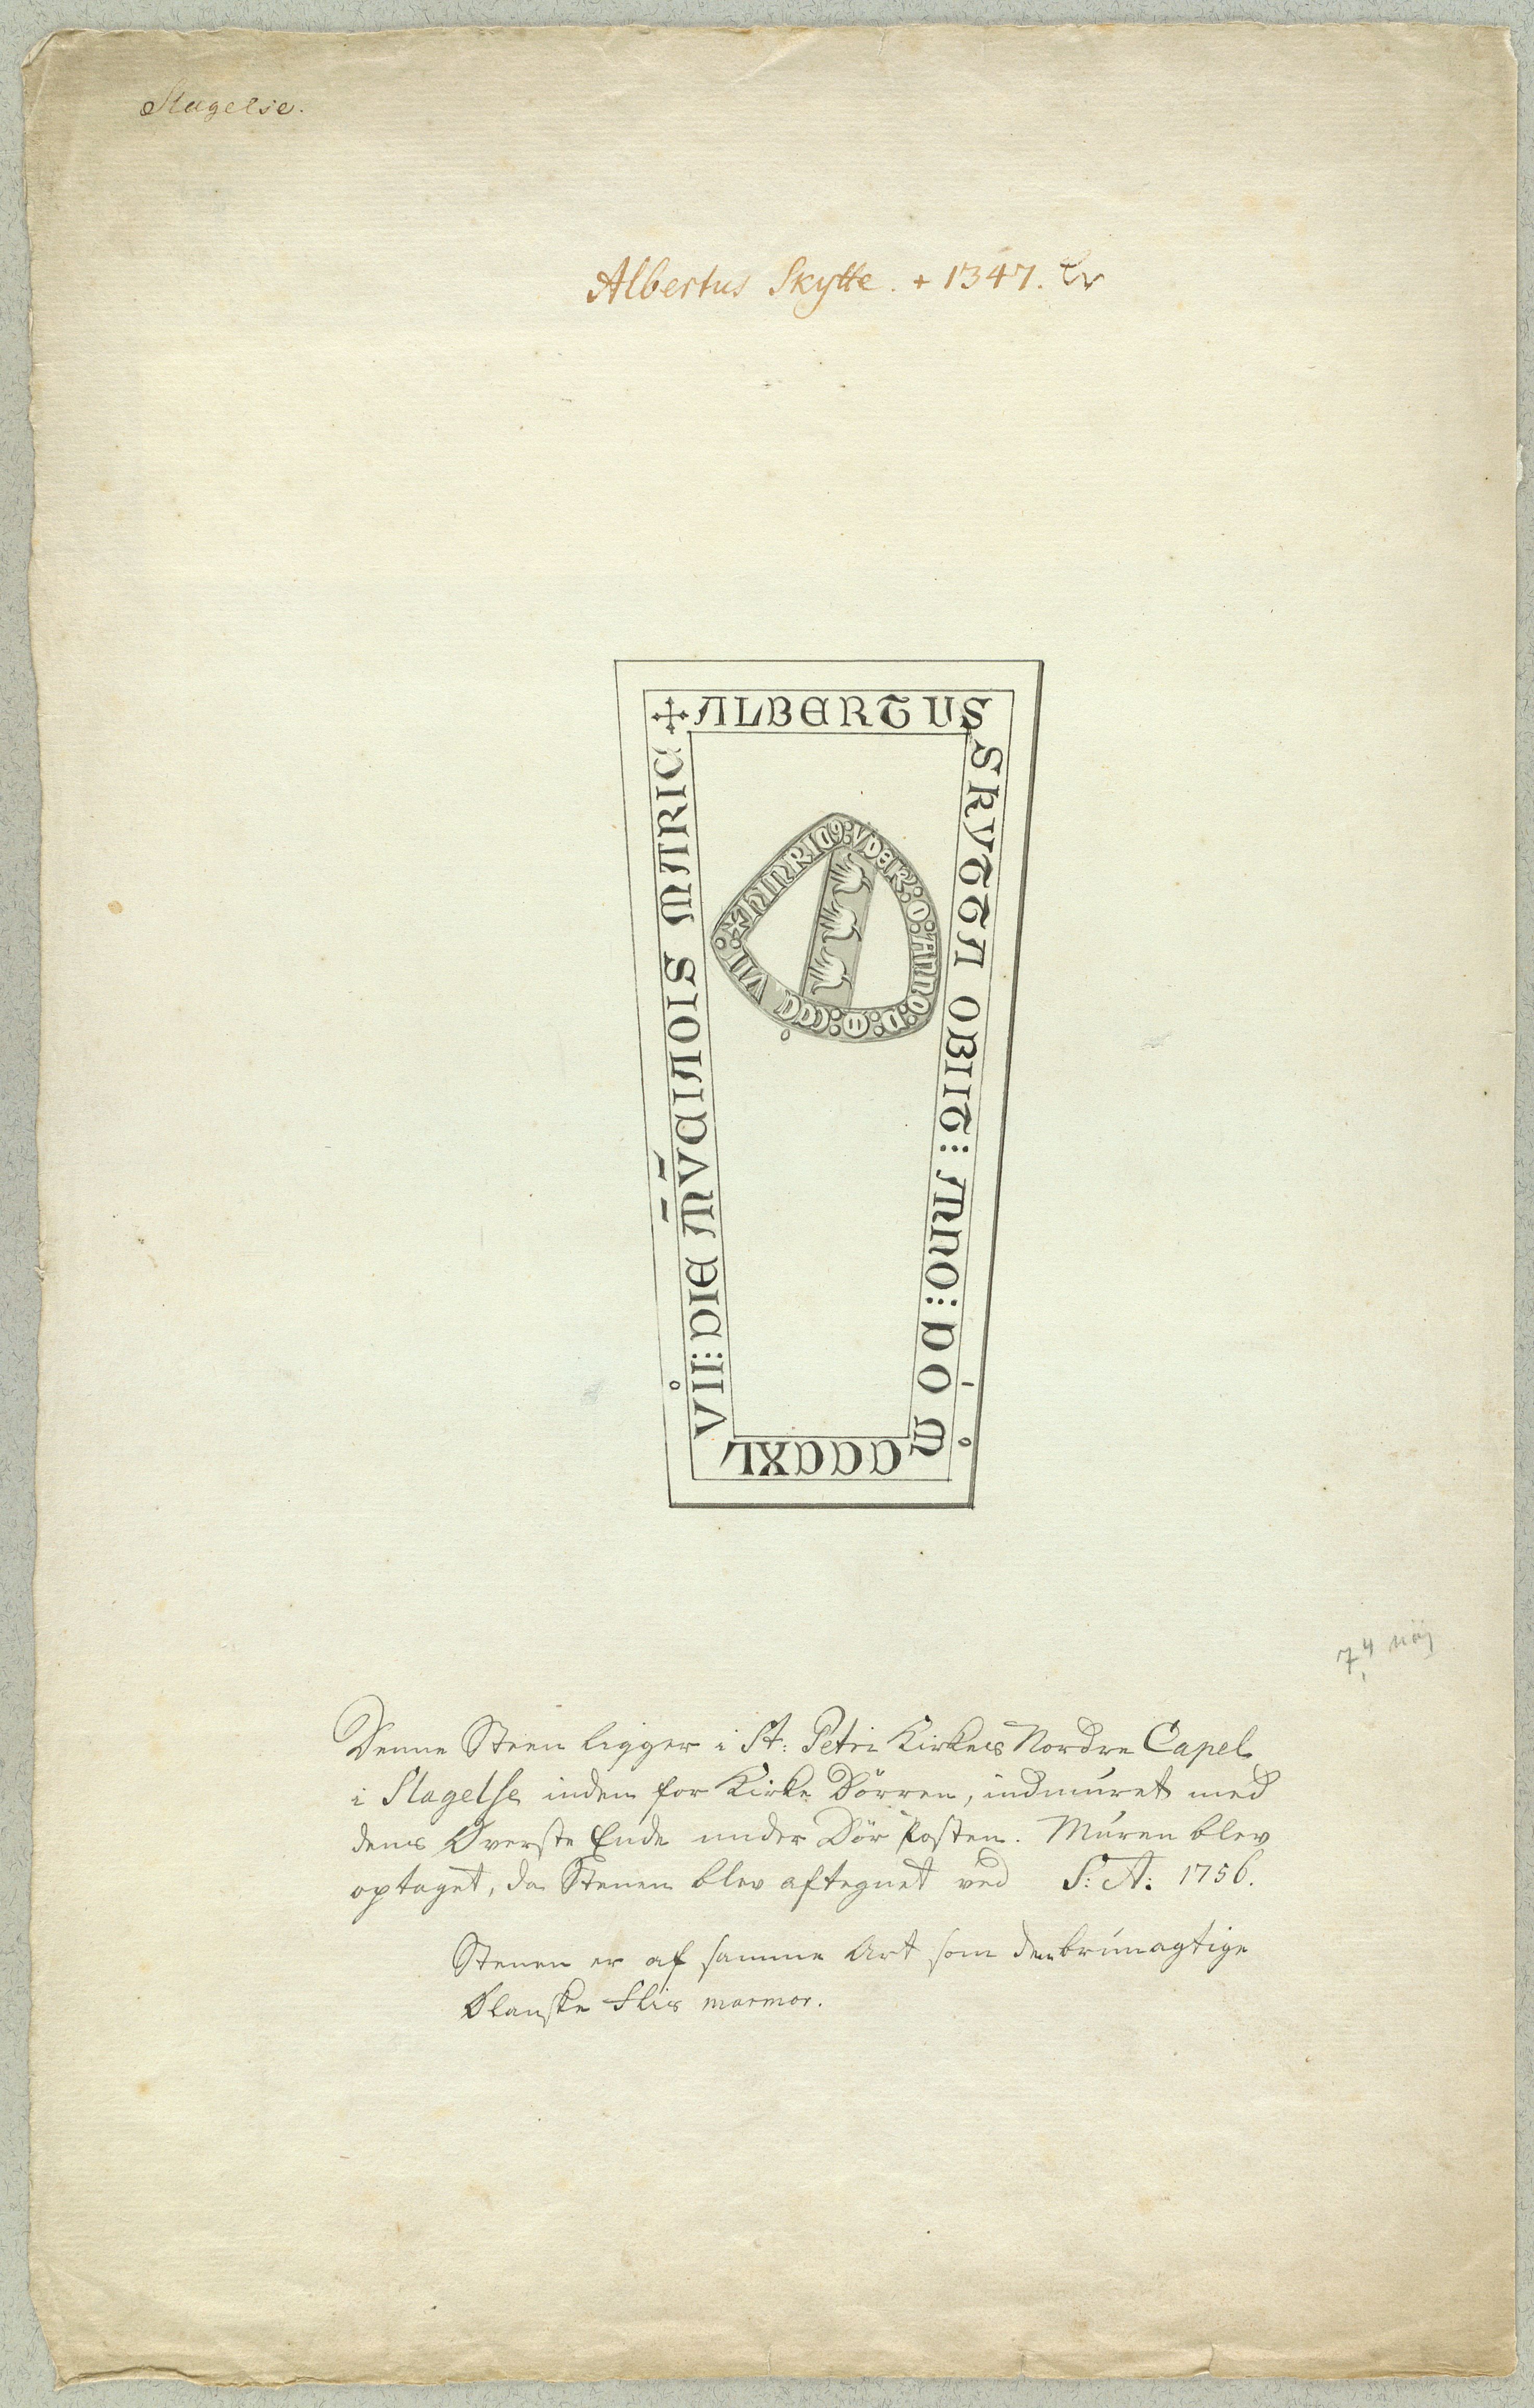 Slagelse.
Albertus Skytte. + 1347.
✠ ALBERTUS
SKYTTA OBIIT⁝ ANNO⁝ DOM
CCCXL
VII⁝ DIE MVCIAOIS MATRICI
✠ HINRIC9: VDER: O: ANNO: D: M: CCC VII:
Denne Steen ligger i St: Petri Kirkes Nordre Capel
i Slagelse inden for Kirke Dörren, indmuret med
dens Överste Ende under Dör Posten. Muren blev
optaget, da Stenen blev aftegnet ved S: A: 1756.
Stenen er af samme Art som den brunagtige
Ølanske Flis marmor.